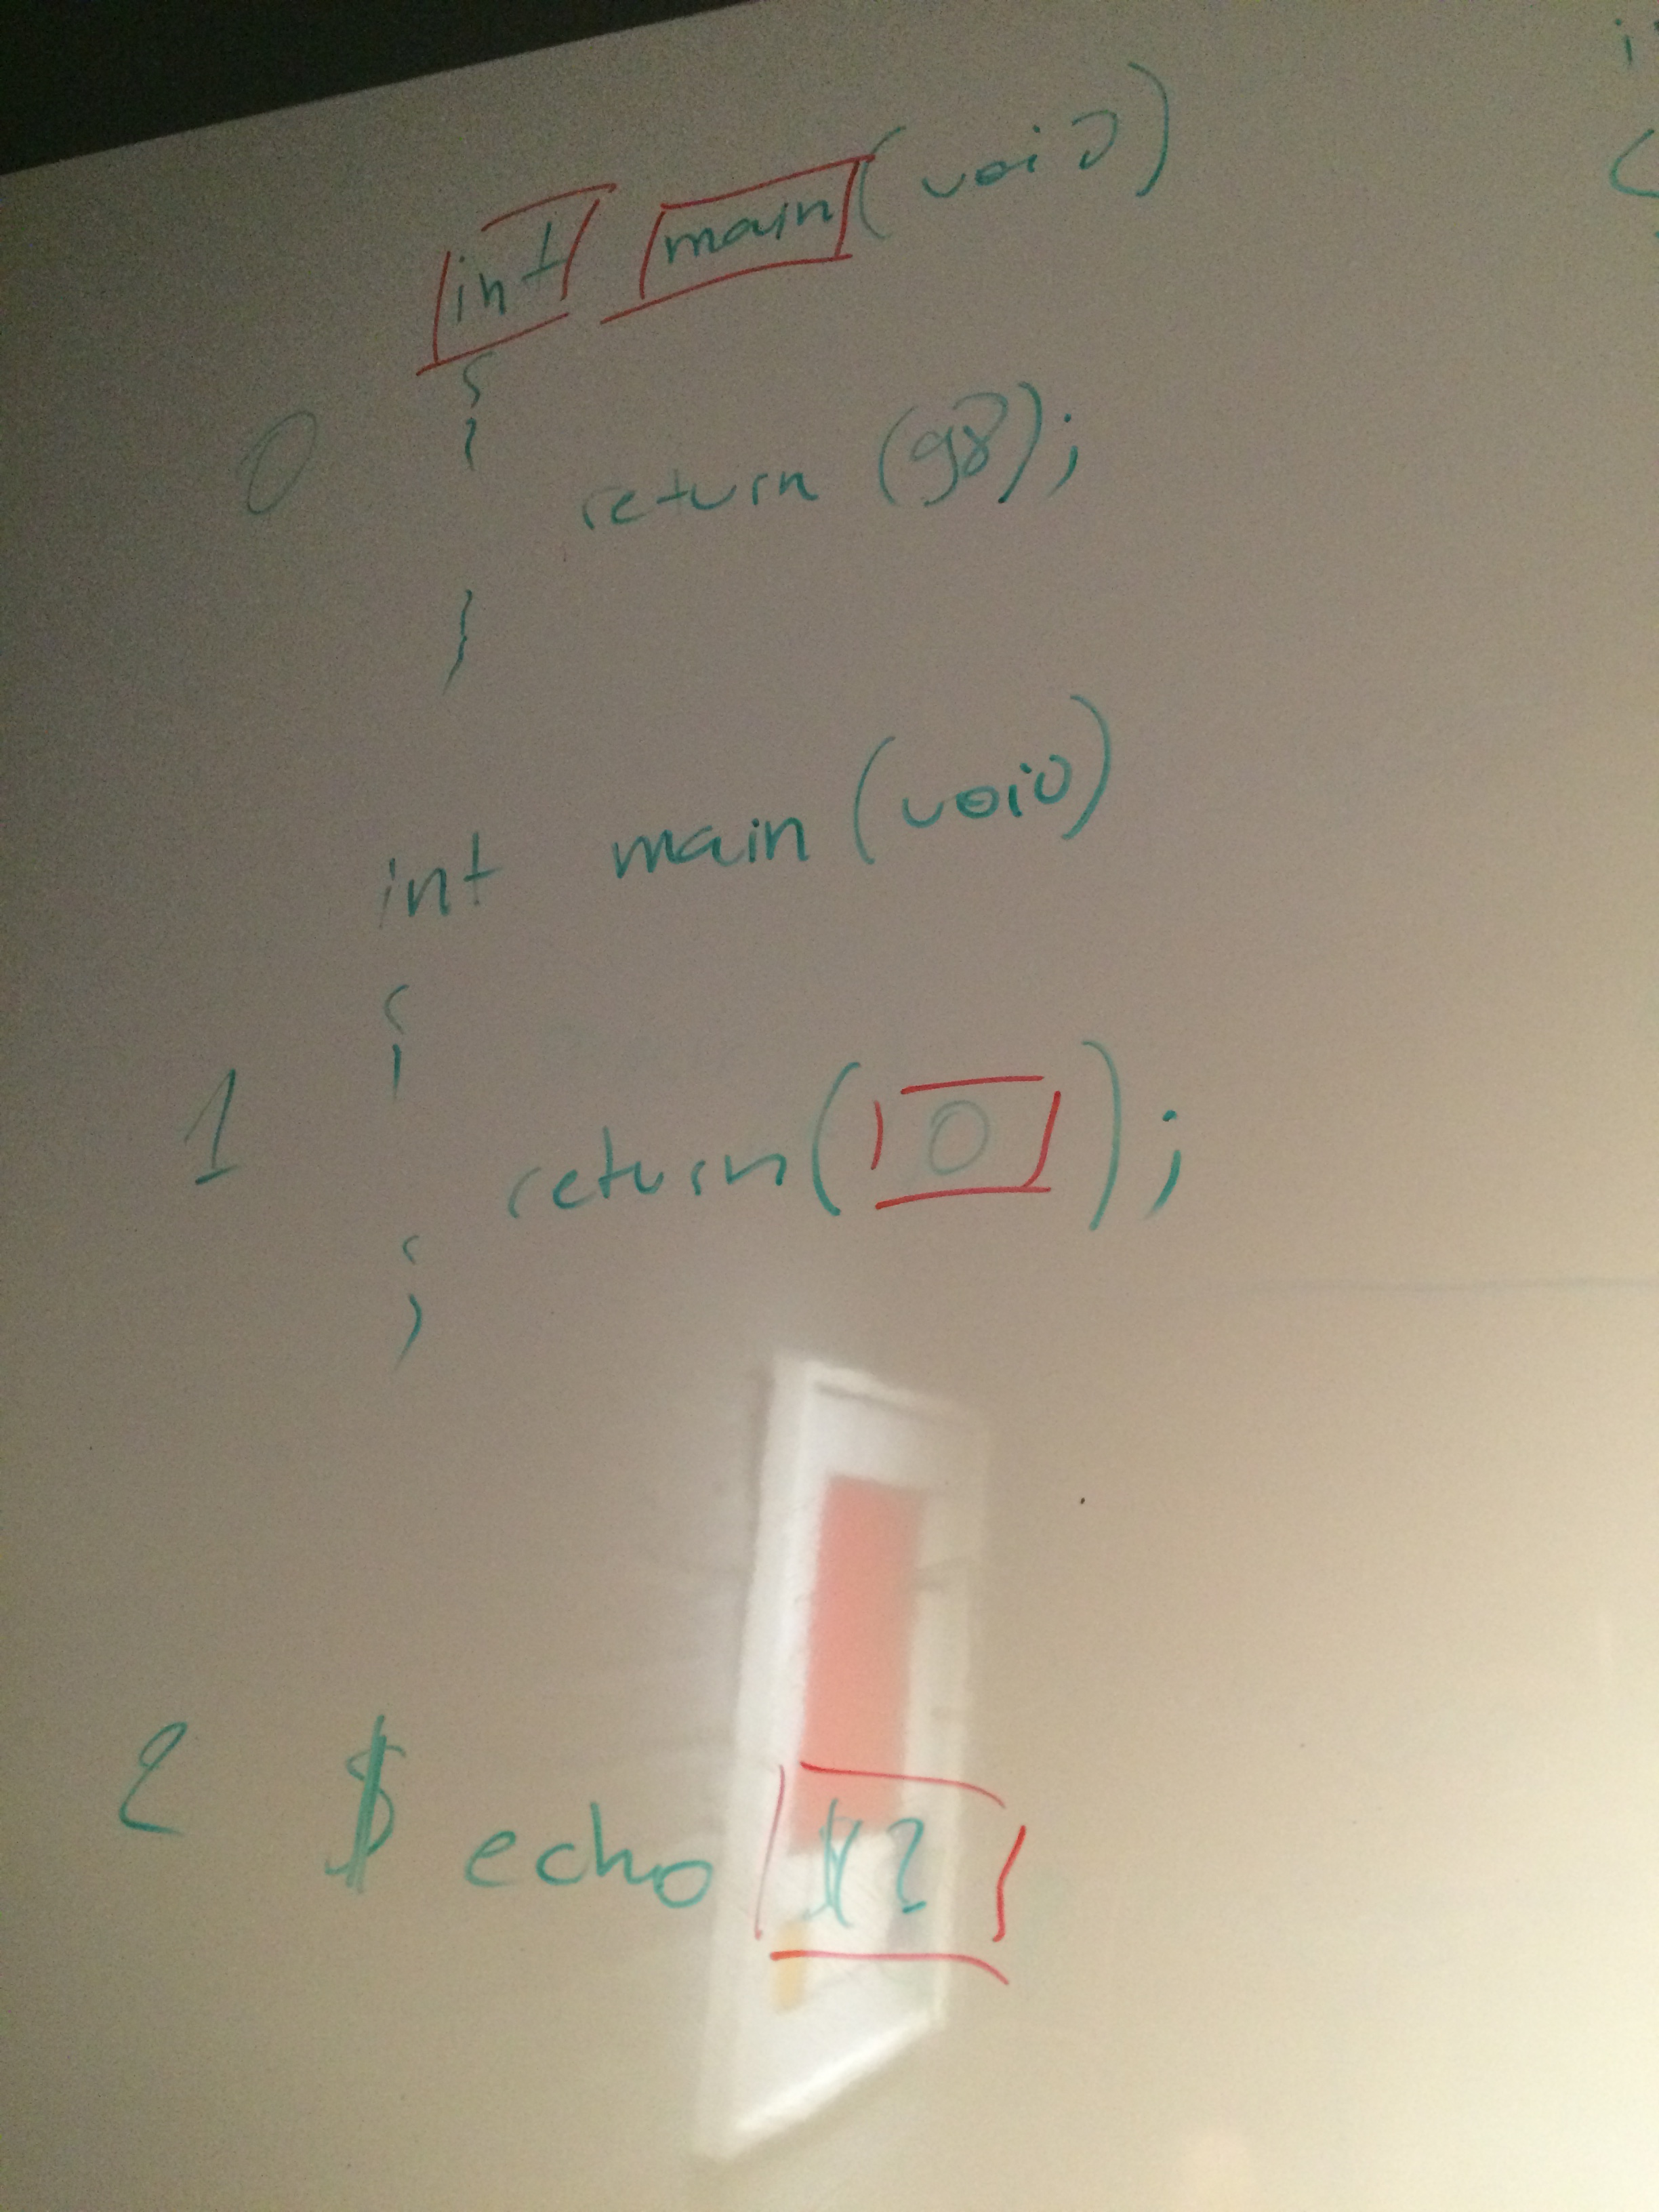 int main(void)
0 {
return (98);
}
int main (void)
1 {
return(0);
}
2 $ echo $?